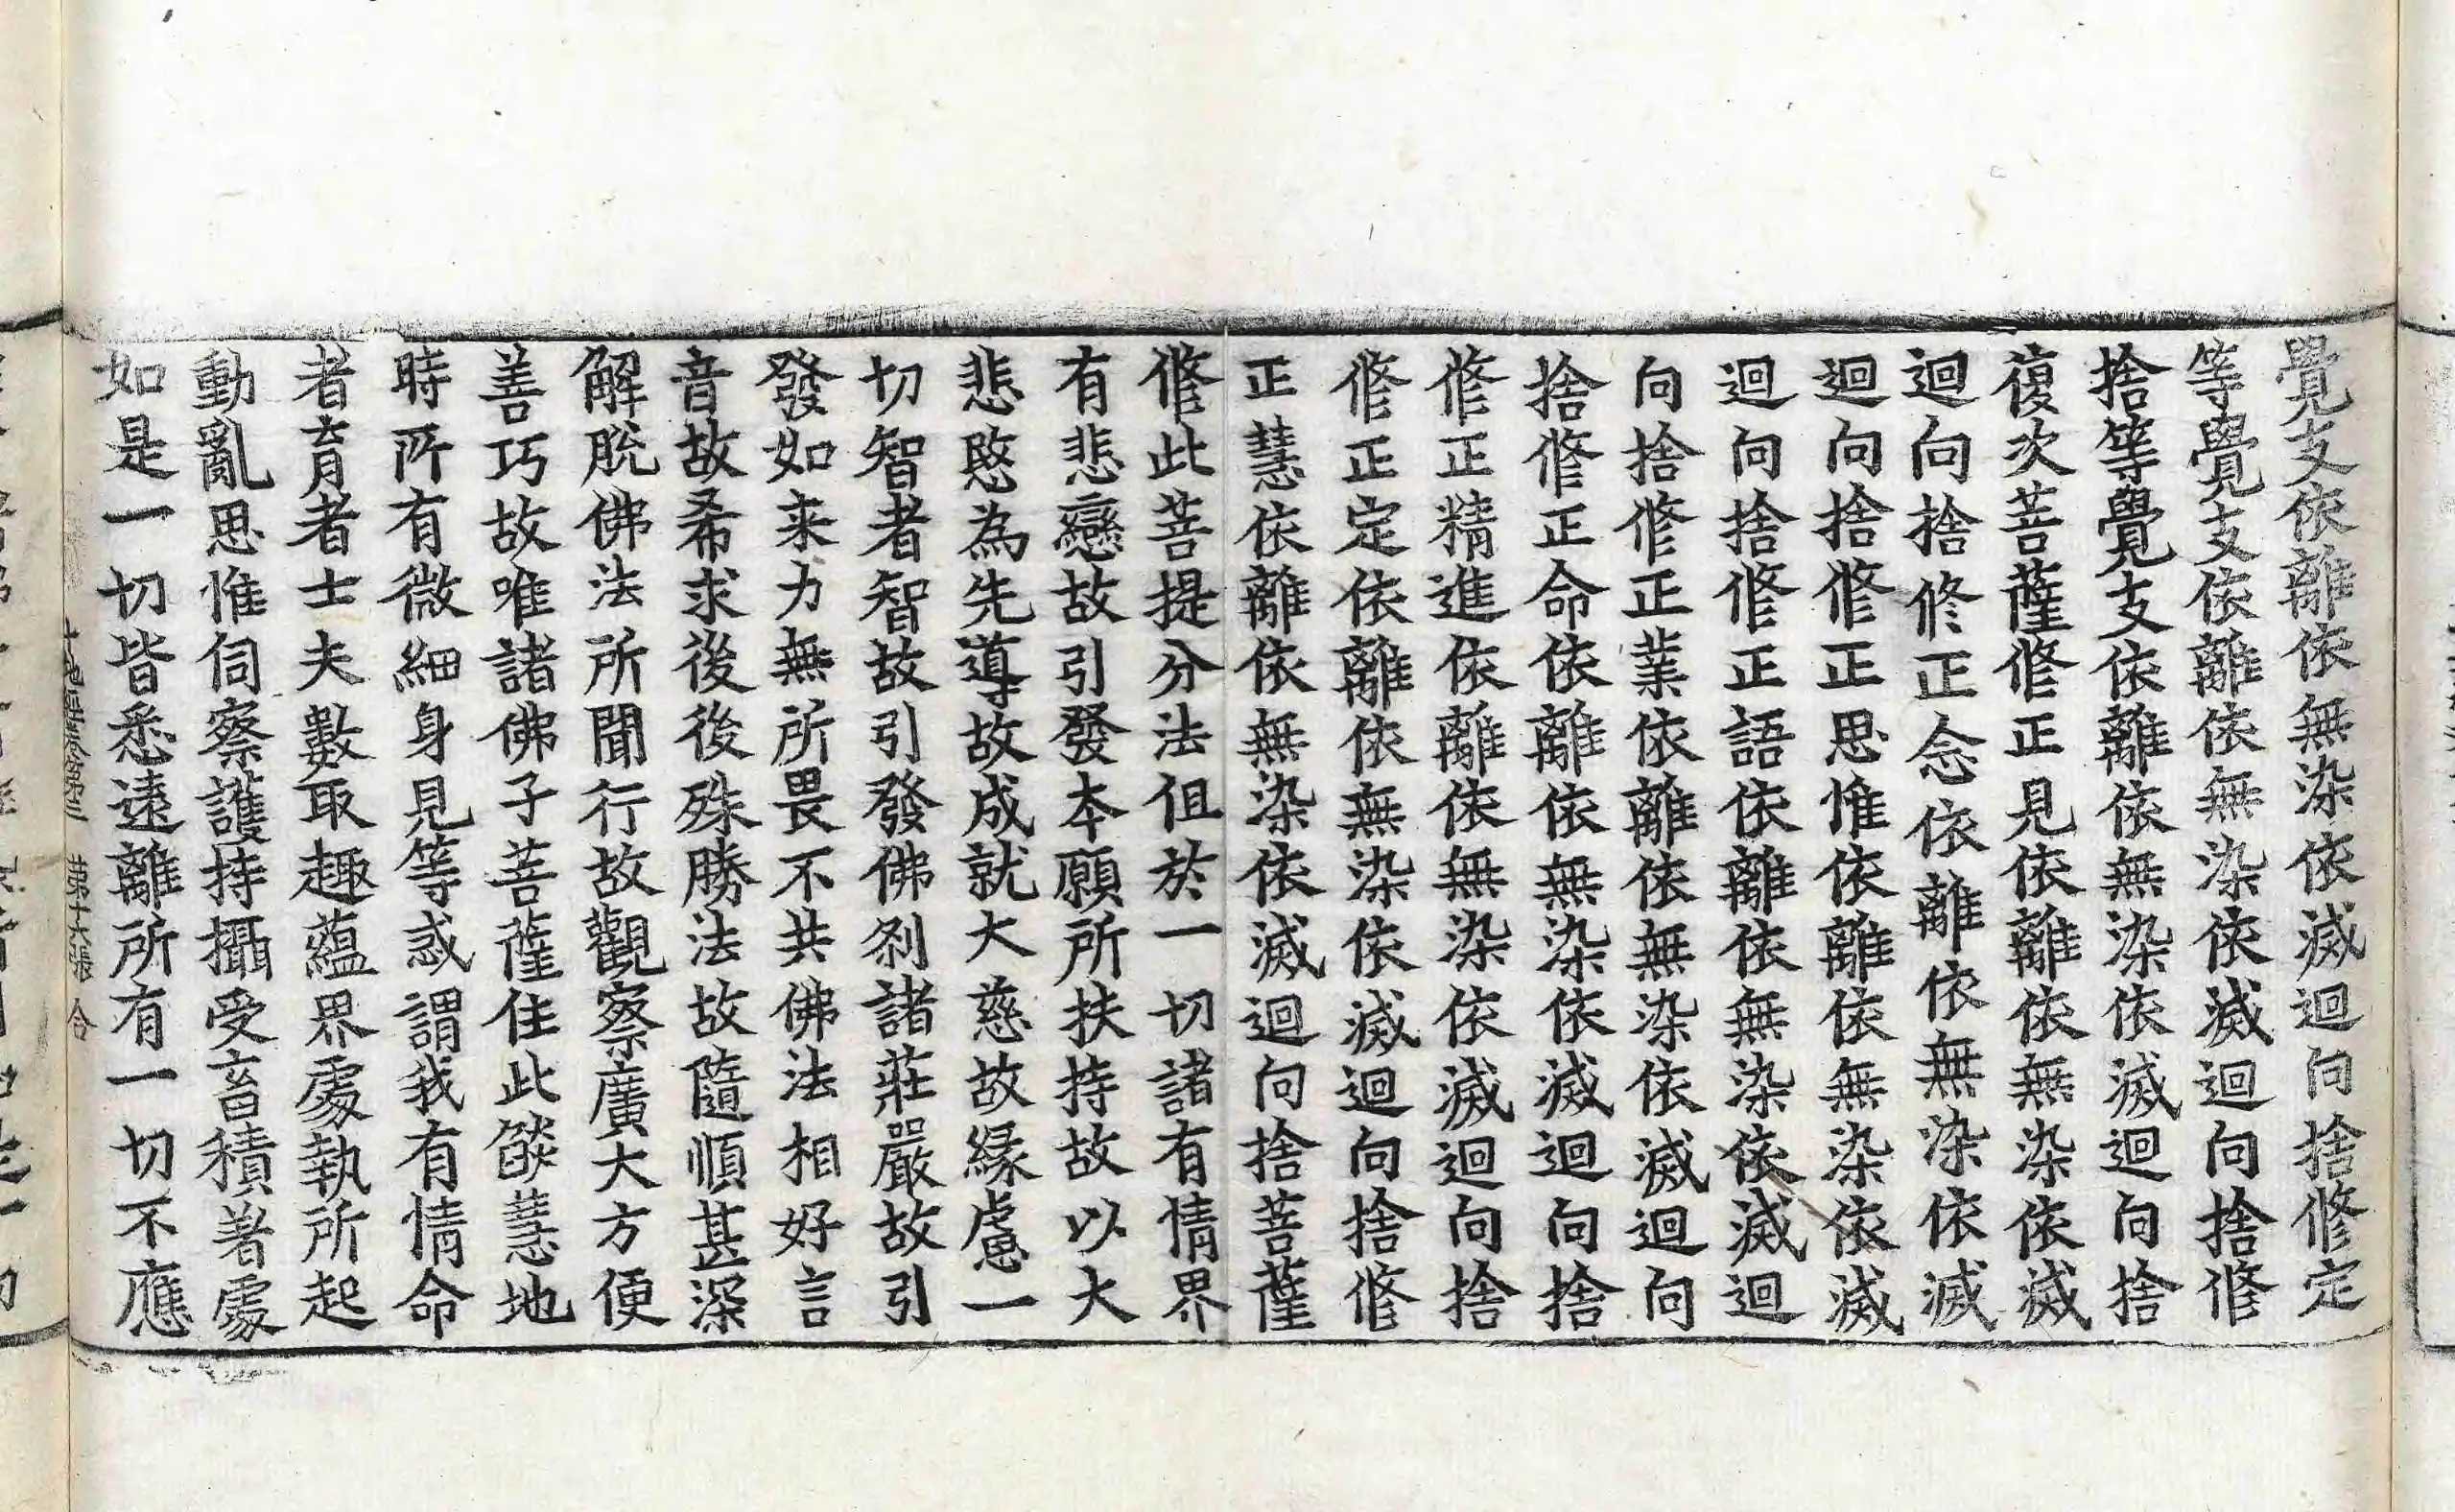 覺支依離依無染依滅迴向捨修定
等覺支依離依無染依滅迴向捨修
捨等覺支依離依無染依滅迴向捨
復次菩薩修正見依離依無染依滅
迴向捨修正念依離依無染依滅
迴向捨修正思惟依離依無染依滅
迴向捨修正語依離依無染依滅迴
向捨修正業依離依無染依滅迴向
捨修正命依離依無染依滅迴向捨
修正精進依離依無染依滅迴向捨
修正定依離依無染依滅迴向捨修
正慧依離依無染依滅迴向捨菩薩
修此菩提分法但於一切諸有情界
有悲戀故引發本願所扶持故以大
悲愍為先導故成就大慈故緣慮一
切智者智故引發佛剎諸莊嚴故引
發如来力無所畏不共佛法相好言
音故希求後後殊勝法故隨順甚深
解脫佛法所聞行故觀察廣大方便
善巧故唯諸佛子菩薩住此燄慧地
時所有微細身見等惑謂我有情命
者育者士夫數取趣蘊界處執所起
動亂思惟伺察護持攝受畜積著處
如是一切皆悉遠離所有一切不應